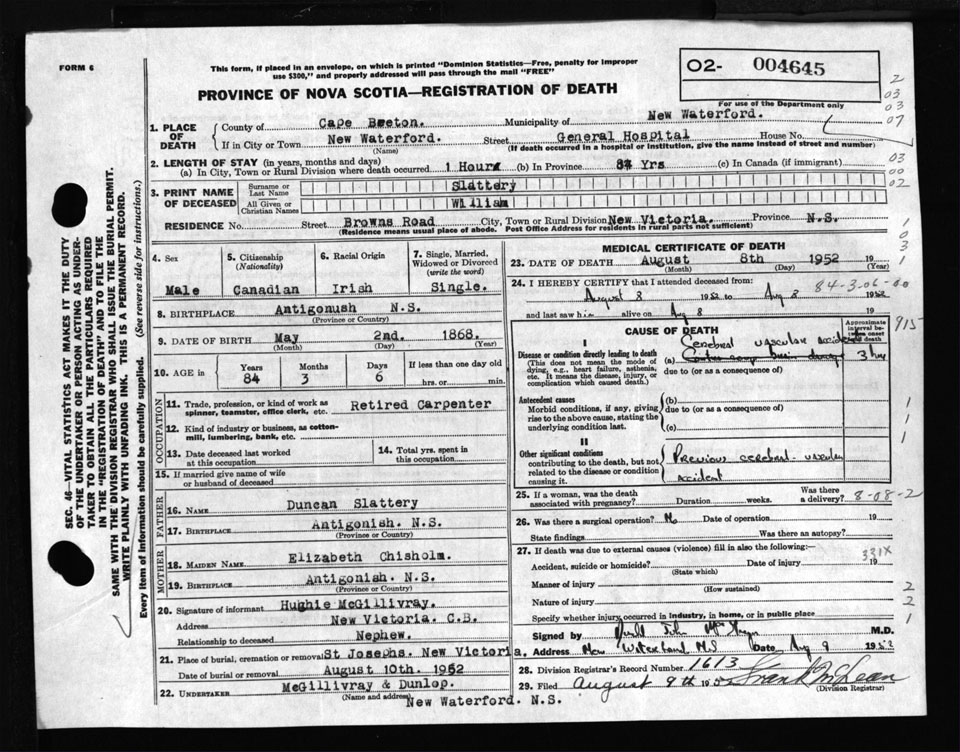 FORM 6
This form, if placed in an envelope, on which is printed "Dominion Statistics—Free, penalty for improper
use $300," and properly addressed will pass through the mail "FREE"
O2- 004645
PROVINCE OF NOVA SCOTIA—REGISTRATION OF DEATH
For use of the Department only
2
03
03
07
03
00
02
1
0
3
1
1. PLACE OF DEATH
County of Cape Breton. Municipality of New Waterford.
If in City or Town New Waterford. Street General Hospital House No.
(Name) (If death occurred in a hospital or institution, give the name instead of street and number)
2. LENGTH OF STAY (in years, months and days)
(a) In City, Town or Rural Division where death occurred 1 Hour (b) In Province 84 Yrs (c) In Canada (if immigrant)
3. PRINT NAME OF DECEASED
Surname or Last Name Slattery
All Given or Christian Names William
RESIDENCE No. Street Browns Road City, Town or Rural Division New Victoria. Province N.S.
(Residence means usual place of abode. Post Office Address for residents in rural parts not sufficient)
4. Sex
Male
5. Citizenship
(Nationality)
Canadian
6. Racial Origin
Irish
7. Single, Married, Widowed or Divorced
(write the word)
Single.
8. BIRTHPLACE Antigonush N.S.
(Province or Country)
9. DATE OF BIRTH May 2nd. 1868.
(Month) (Day) (Year)
10. AGE in Years Months Days If less than one day old
84 3 6 hrs. or min.
OCCUPATION
11. Trade, profession, or kind of work as spinner, teamster, office clerk, etc. Retired Carpenter
12. Kind of industry or business, as cotton-mill, lumbering, bank, etc.
13. Date deceased last worked at this occupation
14. Total yrs. spent in this occupation
15. If married give name of wife or husband of deceased
FATHER
16. NAME Duncan Slattery
17. BIRTHPLACE Antigonish. N.S.
(Province or Country)
MOTHER
18. MAIDEN NAME Elizabeth Chisholm.
19. BIRTHPLACE Antigonish. N.S.
(Province or Country)
20. Signature of informant Hughie McGillivray.
Address New Victoria. C.B.
Relationship to deceased Nephew.
21. Place of burial, cremation or removal St Josephs. New Victoria.
Date of burial or removal August 10th. 1952
22. UNDERTAKER McGillivray & Dunlop.
(Name and address)
New Waterford. N.S.
MEDICAL CERTIFICATE OF DEATH
23. DATE OF DEATH August 8th 1952 19
(Month) (Day) (Year)
24. I HEREBY CERTIFY that I attended deceased from: 84-3-06-00
August 8 1952 to Aug 8 1952
and last saw him alive on Aug 8 19
CAUSE OF DEATH
Approximate interval between onset and death
915
I
Disease or condition directly leading to death
(This does not mean the mode of dying, e.g., heart failure, asthenia, etc. It means the disease, injury, or complication which caused death.)
Cerebral vascular accident
(a) 3 hrs
due to (or as a consequence of)
Antecedent causes
Morbid conditions, if any, giving rise to the above cause, stating the underlying condition last.
(b)
due to (or as a consequence of)
(c)
1
1
1
II
Other significant conditions
contributing to the death, but not related to the disease or condition causing it.
Previous cerebral-vascular
accident
25. If a woman, was the death associated with pregnancy? Duration weeks. Was there a delivery? 8-08-2
26. Was there a surgical operation? No Date of operation 19
State findings Was there an autopsy?
27. If death was due to external causes (violence) fill in also the following:—
331X
Accident, suicide or homicide? Date of injury 19
(State which)
Manner of injury
(How sustained)
Nature of injury
2
2
1
Specify whether injury occurred in industry, in home, or in public place
Signed by John M.D.
Address New Waterford N.S. Date Aug 9 1952
28. Division Registrar's Record Number 1613
29. Filed August 9th 1952 Frank McLean
(Division Registrar)
SEC. 46—VITAL STATISTICS ACT MAKES IT THE DUTY
OF THE UNDERTAKER OR PERSON ACTING AS UNDER-
TAKER TO OBTAIN ALL THE PARTICULARS REQUIRED
IN THE "REGISTRATION OF DEATH" AND TO FILE THE
SAME WITH THE DIVISION REGISTRAR WHO SHALL ISSUE THE BURIAL PERMIT.
WRITE PLAINLY WITH UNFADING INK. THIS IS A PERMANENT RECORD.
Every item of information should be carefully supplied. (See reverse side for instructions.)